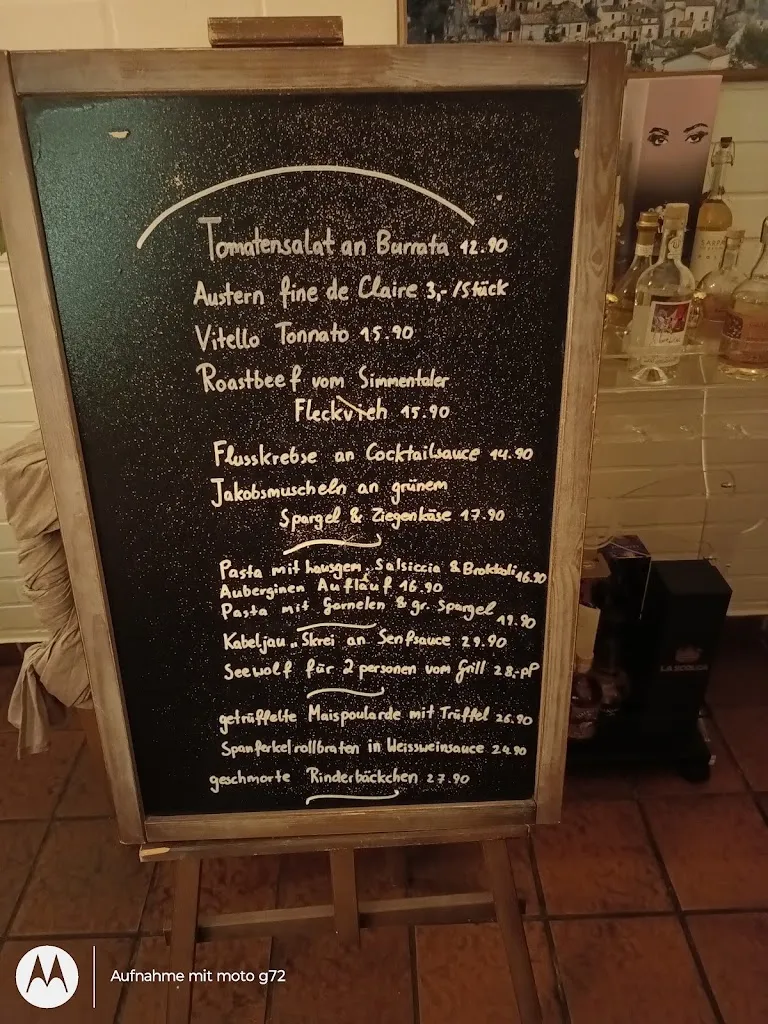 Tomatensalat an Burrata 12.90
Austern fine de Claire 3,-/Stück
Vitello Tonnato 15.90
Roastbeef vom Simmentaler
Fleckvieh 15.90
Flusskrebse an Cocktailsauce 14.90
Jakobsmuscheln an grünem
Spargel & Ziegenkäse 17.90
Pasta mit hausgem. Salsiccia & Brokkoli 16.90
Auberginen Auflauf 16.90
Pasta mit Garnelen & gr. Spargel 19.90
Kabeljau „Skrei an Senfsauce 29.90
Seewolf für 2 personen vom Grill 28,-pP
getrüffelte Maispoularde mit Trüffel 26.90
Spanferkelrollbraten in Weissweinsauce 24.90
geschmorte Rinderbäckchen 27.90
Aufnahme mit moto g72